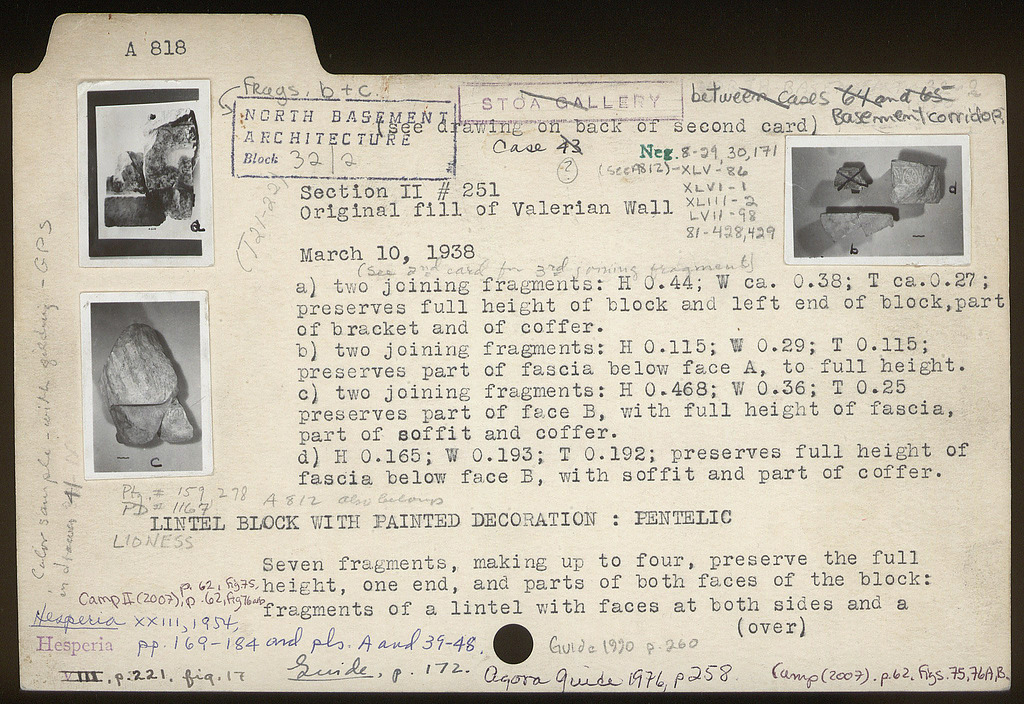 A 818
frags. b + c.
NORTH BASEMENT
ARCHITECTURE
Block 32/2
STOA GALLERY
between Cases 64 and 65
Basement corridor
(see drawing on back of second card)
Case 43
Neg. 8-29, 30, 171
(See A812)-XLV-86
XLVI-1
XLIII-2
LVII-98
81-428,429
Section II # 251
Original fill of Valerian Wall
March 10, 1938
(See 2nd card for 3rd joining fragment)
a) two joining fragments: H 0.44; W ca. 0.38; T ca.0.27;
preserves full height of block and left end of block,part
of bracket and of coffer.
b) two joining fragments: H 0.115; W 0.29; T 0.115;
preserves part of fascia below face A, to full height.
c) two joining fragments: H 0.468; W 0.36; T 0.25
preserves part of face B, with full height of fascia,
part of soffit and coffer.
d) H 0.165; W 0.193; T 0.192; preserves full height of
fascia below face B, with soffit and part of coffer.
a
b
d
c
Color sample - with - GPS
in drawer
Ph. # 159, 278
PD # 1167
A 812 also belongs
LINTEL BLOCK WITH PAINTED DECORATION : PENTELIC
LIONESS
Seven fragments, making up to four, preserve the full
height, one end, and parts of both faces of the block:
fragments of a lintel with faces at both sides and a
(over)
p. 62, fig 75,
Camp II (2007), p. 62, fig 76
Hesperia XXIII, 1954,
pp. 169-184 and pls. A and 39-48.
Hesperia
VIII, p.221, fig. 17
Guide, p. 172.
Guide 1990 p. 260
Agora Guide 1976, p 258.
Camp (2007). p. 62, figs. 75, 76A,B.